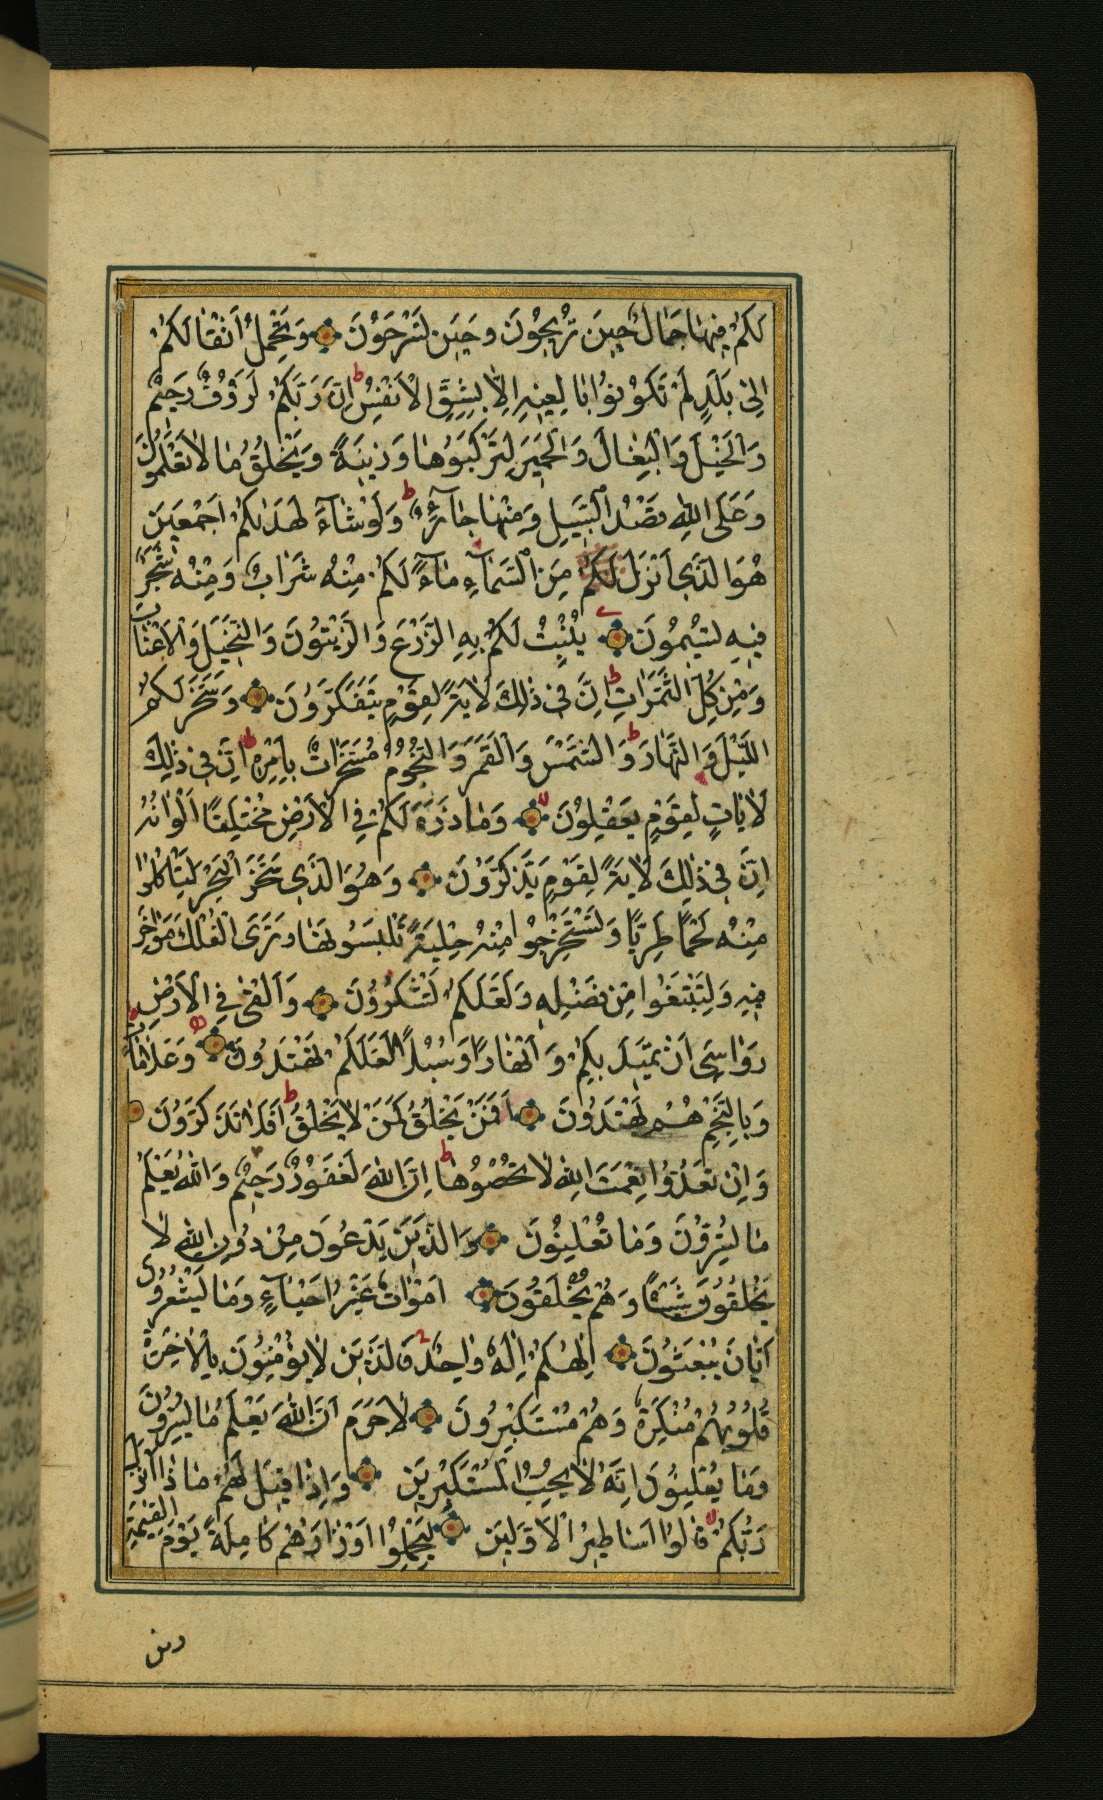 لَكُمْ فِيهَا جَمَالٌ حِينَ تُرِيحُونَ وَحِينَ تَسْرَحُونَ وَتَحْمِلُ اَثْقَالَكُمْ
اِلٰى بَلَدٍ لَمْ تَكُونُوا بَالِغِيهِ اِلَّا بِشِقِّ الْاَنْفُسِ ط اِنَّ رَبَّكُمْ لَرَؤُفٌ رَحِيمٌ
وَالْخَيْلَ وَالْبِغَالَ وَالْحَمِيرَ لِتَرْكَبُوهَا وَزِينَةً وَيَخْلُقُ مَا لَا تَعْلَمُونَ
وَعَلَى اللهِ قَصْدُ السَّبِيلِ وَمِنْهَا جَآئِرٌ ط وَلَوْ شَآءَ لَهَدٰيكُمْ اَجْمَعِينَ
هُوَ الَّذِى اَنْزَلَ لَكُمْ مِنَ السَّمَآءِ مَآءً لَكُمْ مِنْهُ شَرَابٌ وَمِنْهُ شَجَرٌ
فِيهِ تُسِيمُونَ يُنْبِتُ لَكُمْ بِهِ الزَّرْعَ وَالزَّيْتُونَ وَالنَّخِيلَ وَالْاَعْنَابَ
وَمِنْ كُلِّ الثَّمَرَاتِ ط اِنَّ فِى ذٰلِكَ لَاٰيَةً لِقَوْمٍ يَتَفَكَّرُونَ وَسَخَّرَ لَكُمُ
اللَّيْلَ وَالنَّهَارَ ط وَالشَّمْسَ وَالْقَمَرَ وَالنُّجُومُ مُسَخَّرَاتٌ بِاَمْرِهِ ط اِنَّ فِى ذٰلِكَ
لَاٰيَاتٍ لِقَوْمٍ يَعْقِلُونَ لا وَمَا ذَرَءَ لَكُمْ فِى الْاَرْضِ مُخْتَلِفًا اَلْوَانُهُ
اِنَّ فِى ذٰلِكَ لَاٰيَةً لِقَوْمٍ يَذَّكَّرُونَ وَهُوَ الَّذِى سَخَّرَ الْبَحْرَ لِتَاْكُلُوا
مِنْهُ لَحْمًا طَرِيًّا وَتَسْتَخْرِجُوا مِنْهُ حِلْيَةً تَلْبَسُونَهَا وَتَرَى الْفُلْكَ مَوَاخِرَ
فِيهِ وَلِتَبْتَغُوا مِنْ فَضْلِهِ وَلَعَلَّكُمْ تَشْكُرُونَ وَاَلْقٰى فِى الْاَرْضِ
رَوَاسِىَ اَنْ تَمِيدَ بِكُمْ وَاَنْهَارًا وَسُبُلًا لَعَلَّكُمْ تَهْتَدُونَ وَعَلَامَاتٍ
وَبِالنَّجْمِ هُمْ يَهْتَدُونَ اَفَمَنْ يَخْلُقُ كَمَنْ لَا يَخْلُقُ ط اَفَلَا تَذَكَّرُونَ
وَاِنْ تَعُدُّوا نِعْمَتَ اللهِ لَا تُحْصُوهَا ط اِنَّ اللهَ لَغَفُورٌ رَحِيمٌ وَاللهُ يَعْلَمُ
مَا تُسِرُّونَ وَمَا تُعْلِنُونَ وَالَّذِينَ يَدْعُونَ مِنْ دُونِ اللهِ لَا
يَخْلُقُونَ شَيْئًا وَهُمْ يُخْلَقُونَ اَمْوَاتٌ غَيْرُ اَحْيَآءٍ وَمَا يَشْعُرُونَ
اَيَّانَ يُبْعَثُونَ اِلٰهُكُمْ اِلٰهٌ وَاحِدٌ فَالَّذِينَ لَا يُؤْمِنُونَ بِالْاٰخِرَةِ
قُلُوبُهُمْ مُنْكِرَةٌ وَهُمْ مُسْتَكْبِرُونَ لَاجَرَمَ اَنَّ اللهَ يَعْلَمُ مَا يُسِرُّونَ
وَمَا يُعْلِنُونَ اِنَّهُ لَا يُحِبُّ الْمُسْتَكْبِرِينَ وَاِذَا قِيلَ لَهُمْ مَا ذَا اَنْزَلَ
رَبُّكُمْ لا قَالُوا اَسَاطِيرُ الْاَوَّلِينَ لِيَحْمِلُوا اَوْزَارَهُمْ كَامِلَةً يَوْمَ الْقِيٰمَةِ
ومن